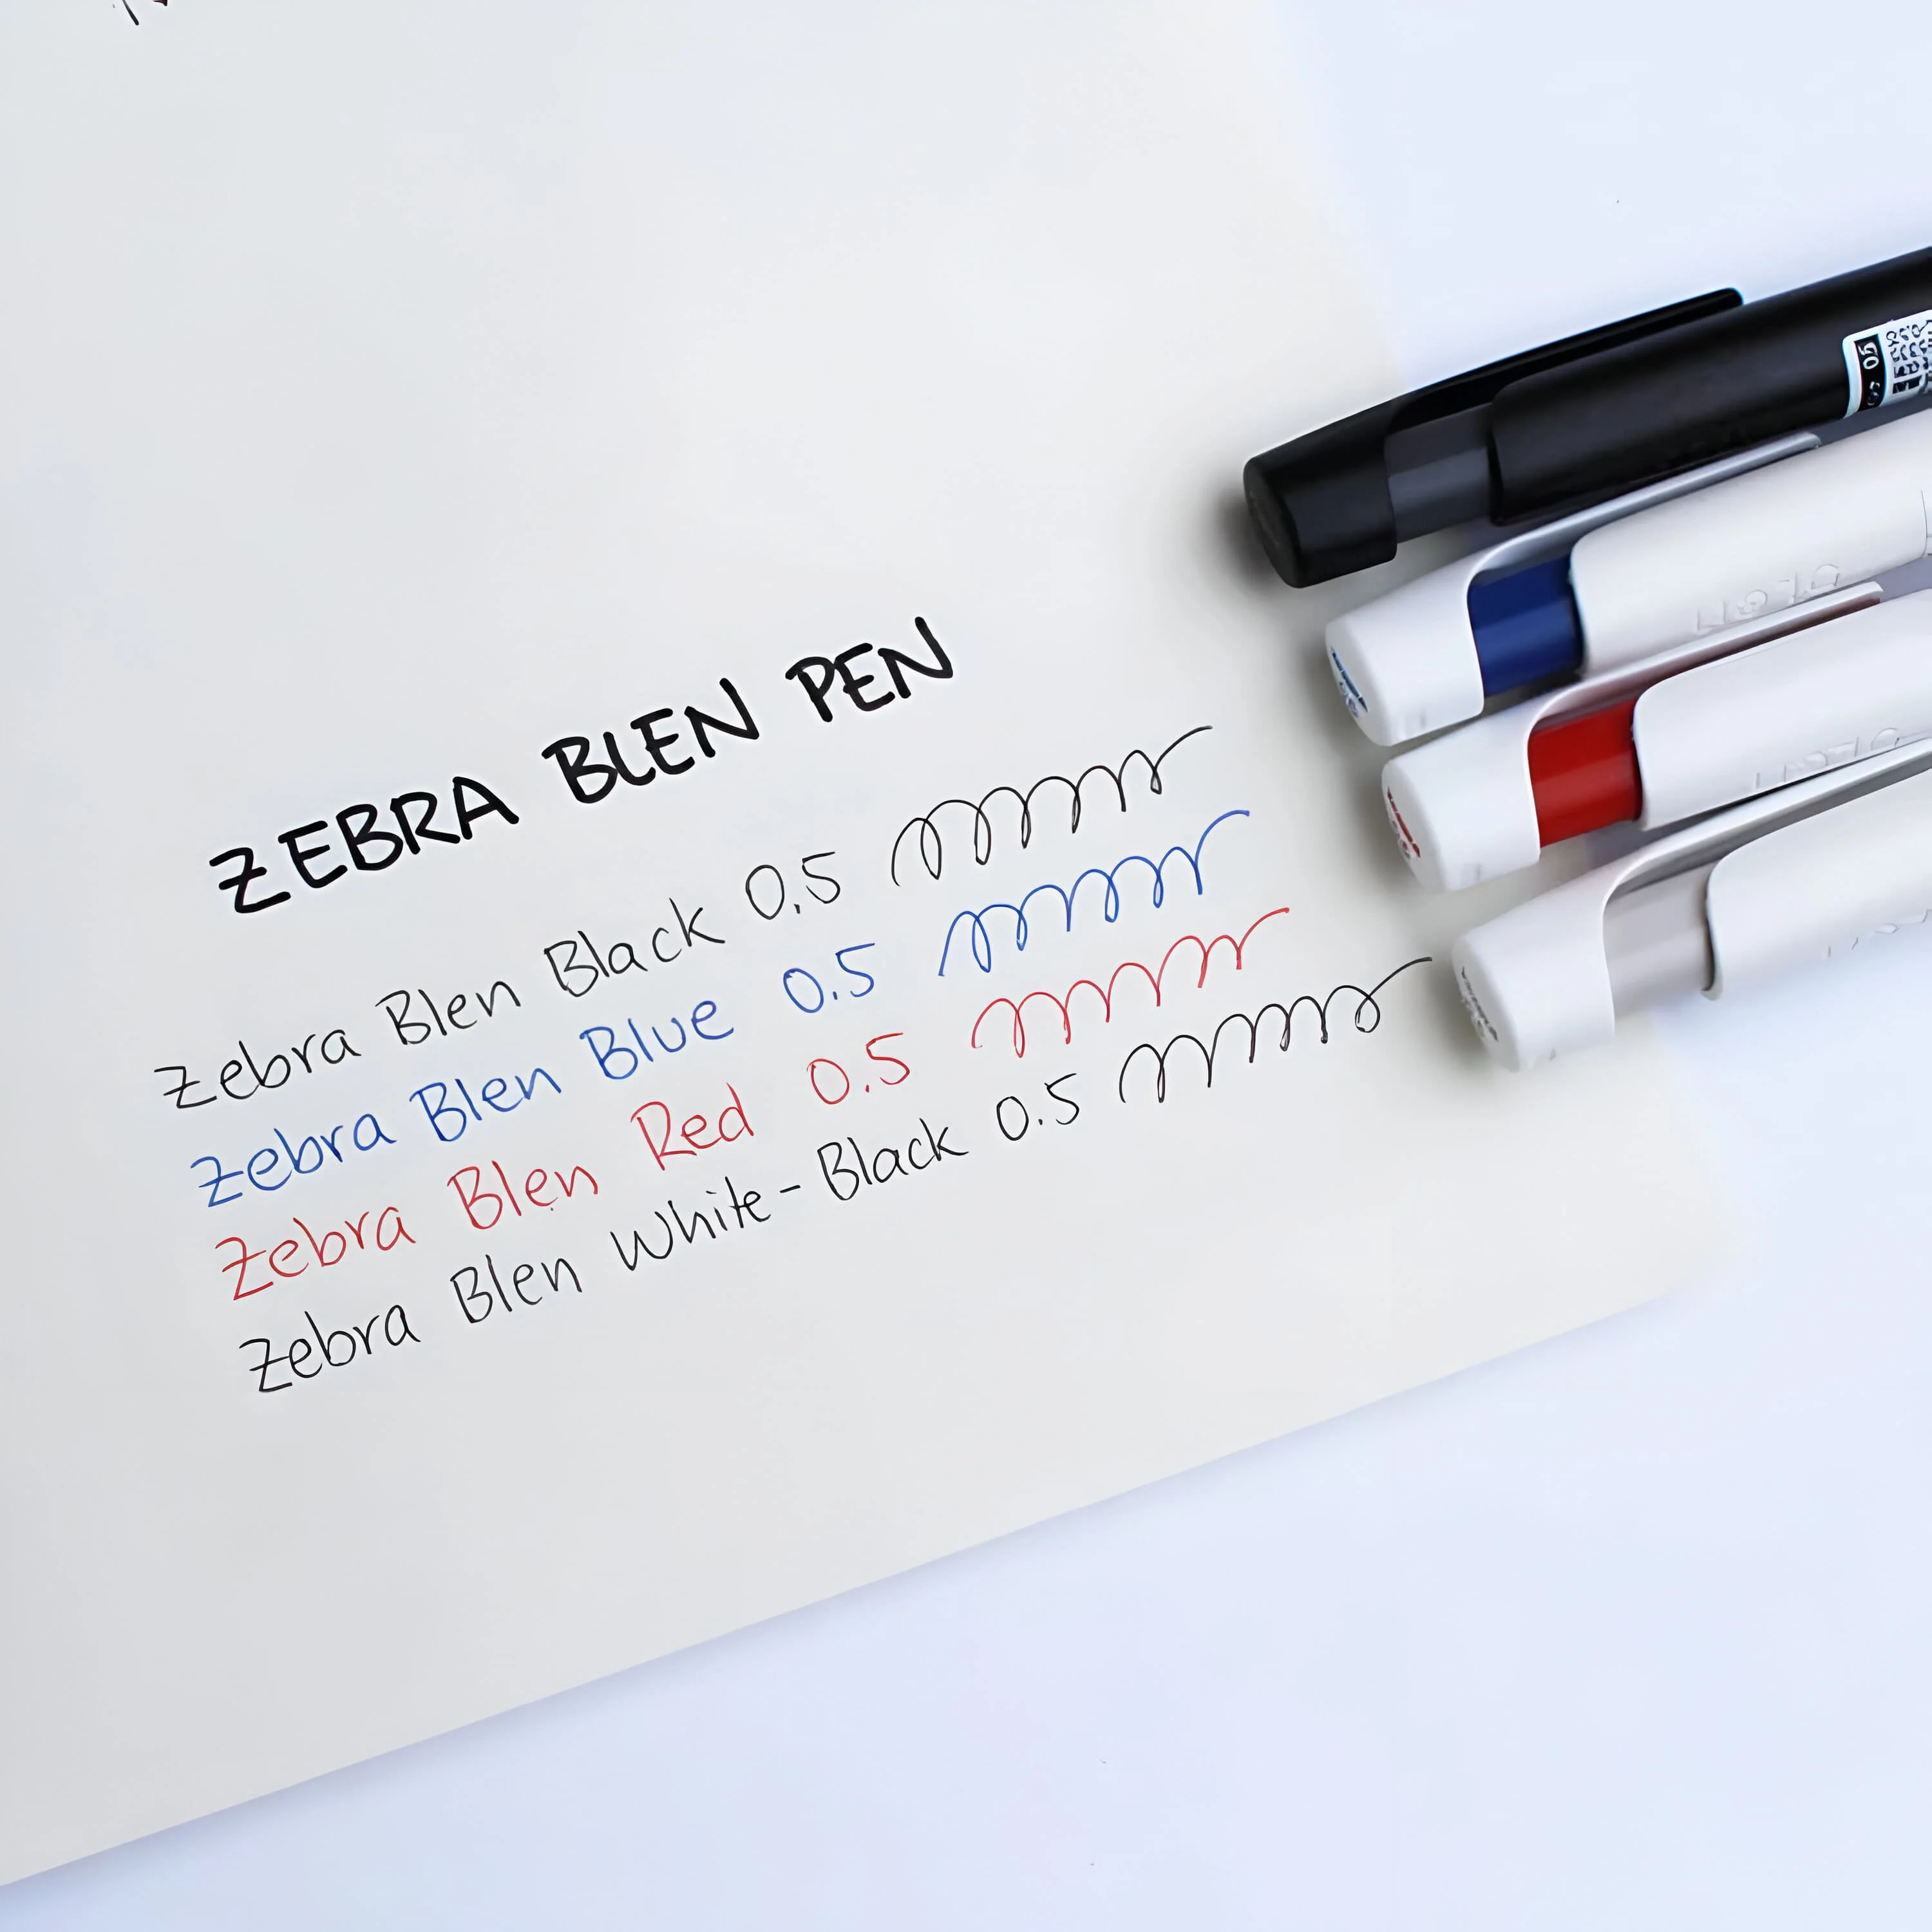 ZEBRA BLEN PEN
Zebra Blen Black 0.5
Zebra Blen Blue 0.5
Zebra Blen Red 0.5
Zebra Blen White-Black 0.5
05